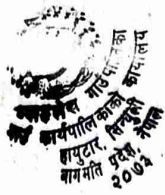 गाउँपालिका
कार्यपालिकाको कार्यालय
हायुटार, सिन्धुली
बागमति प्रदेश, नेपाल
२०७३